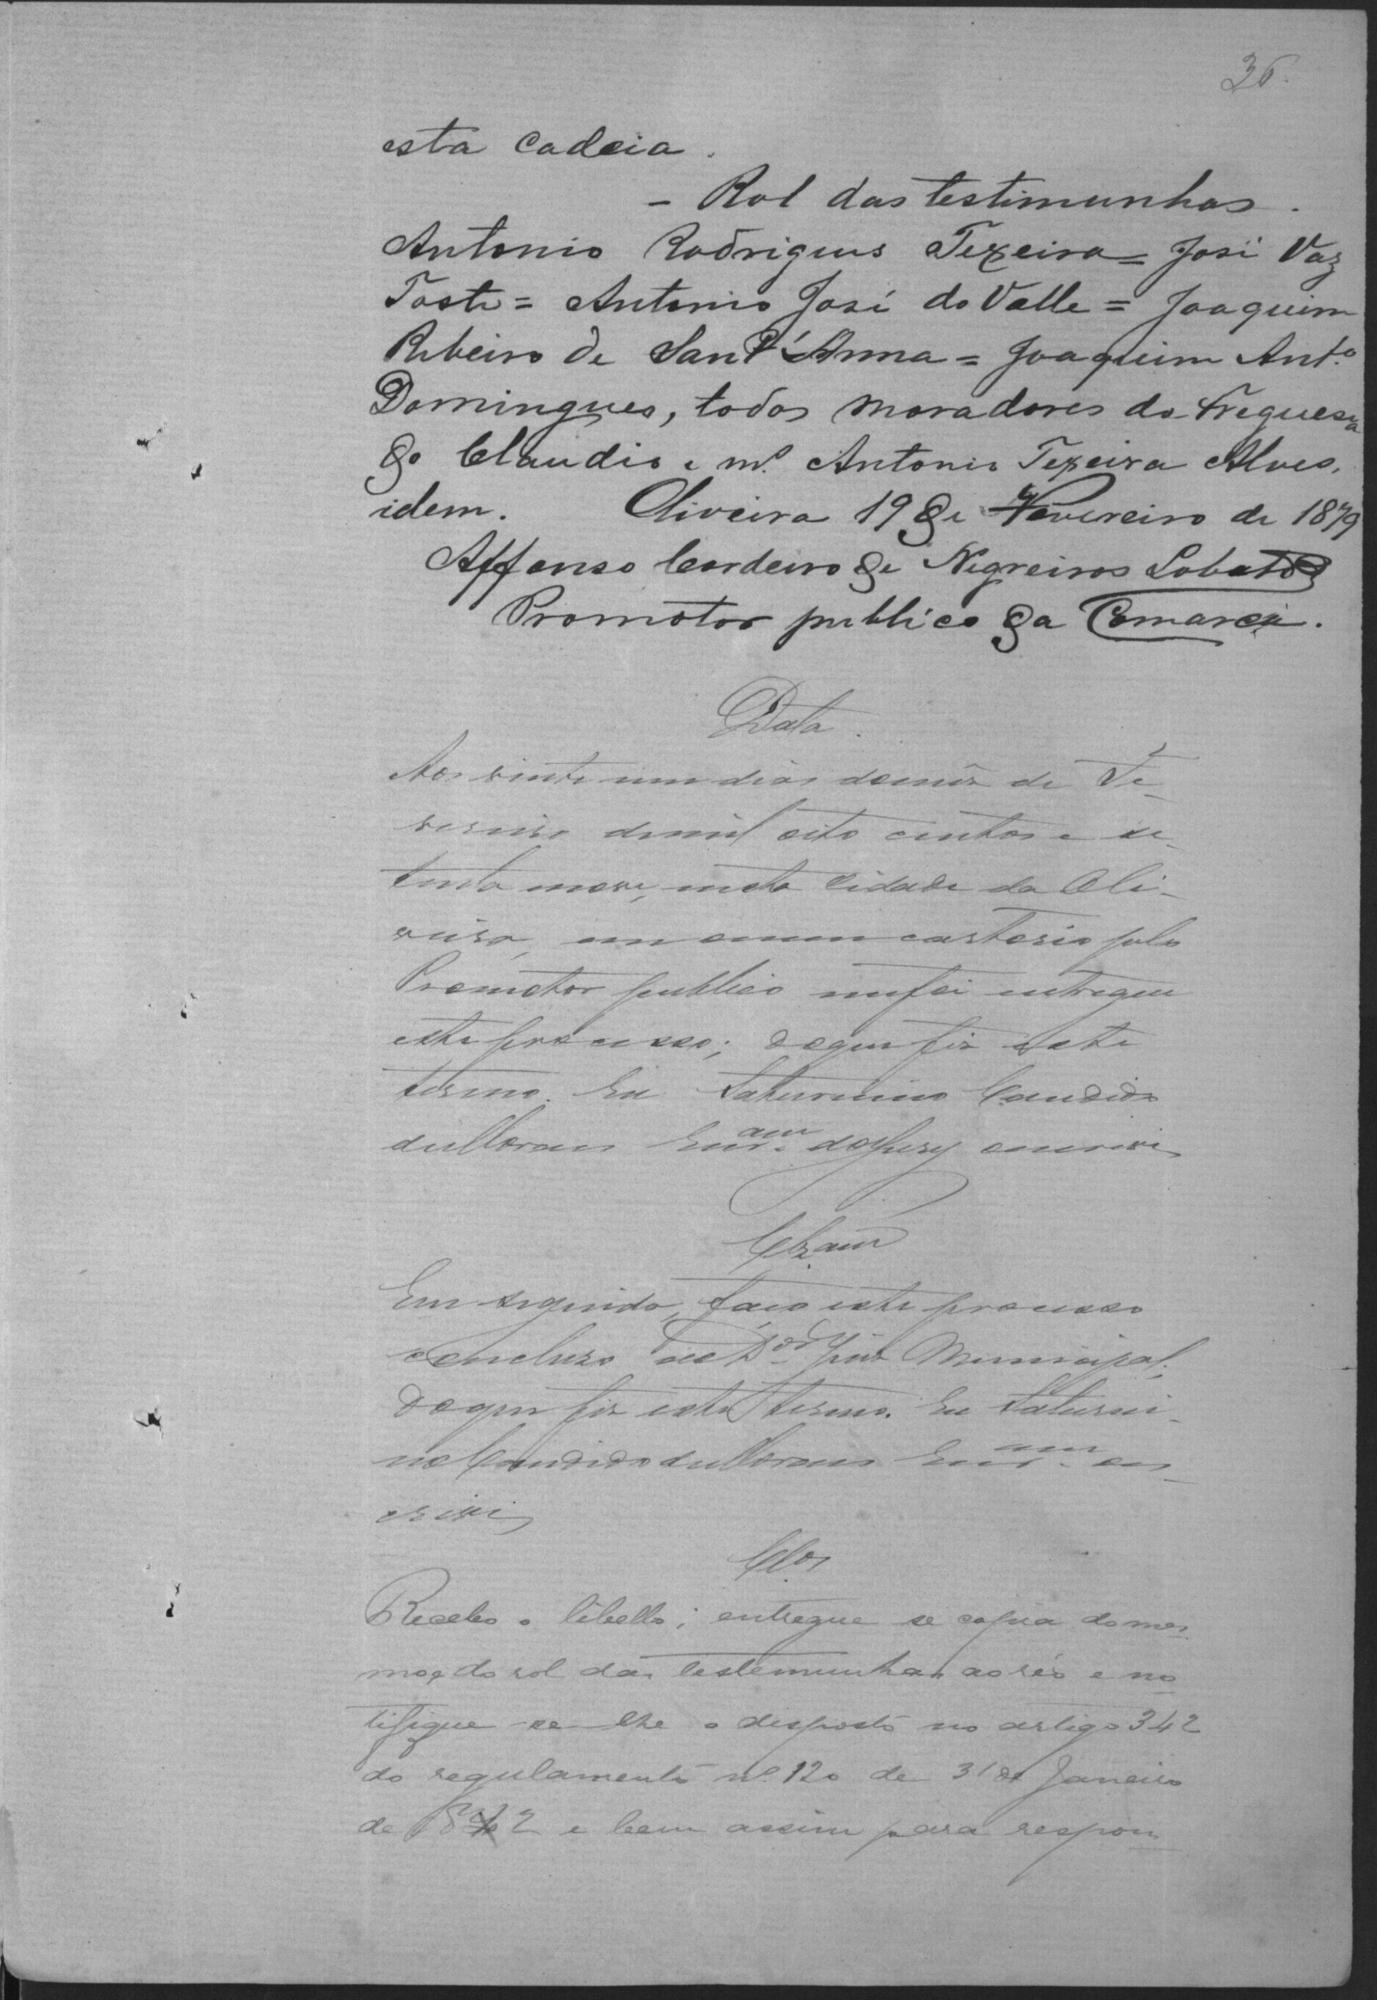 36.
esta cadeia.
- Rol das testimunhas.
Antonio Rodrigues Texeira = José Vaz
Toste = Antonio José do Valle = Joaquim
Ribeiro de Sant'Anna = Joaquim Ant.º
Domingues, todos moradores da Freguesia
do Claudio e m.º Antonio Texeira Alves,
idem. Oliveira 19 de Fevereiro de 1879
Affonso Cordeiro de Negreiros Lobato
Promotor publico da Comarca.
Data.
Aos vinte um dias domez de Fe-
vereiro demil oito centos e se-
tenta nove, nesta Cidade da Oli-
veira, em meu cartorio pelo
Promotor publico mefoi entregue
este processo; doque fiz este
termo. Eu Saturnino Candido
deMoraes Escr.am dojury escrevi
Clzam
Em seguida, faço este processo
concluso ao D.or Juiz Municipal;
doque fiz este termo. Eu Saturni-
no Candido deMoraes Escr.am es-
crevi
Cl.os
Recebo o libello; entregue se copia do mes
mo e do rol das testemunhas ao réo e no
tifique-se-lhe o disposto no artigo 342
do regulamento nº 120 de 31 de Janeiro
de 1842 e bem assim para respon